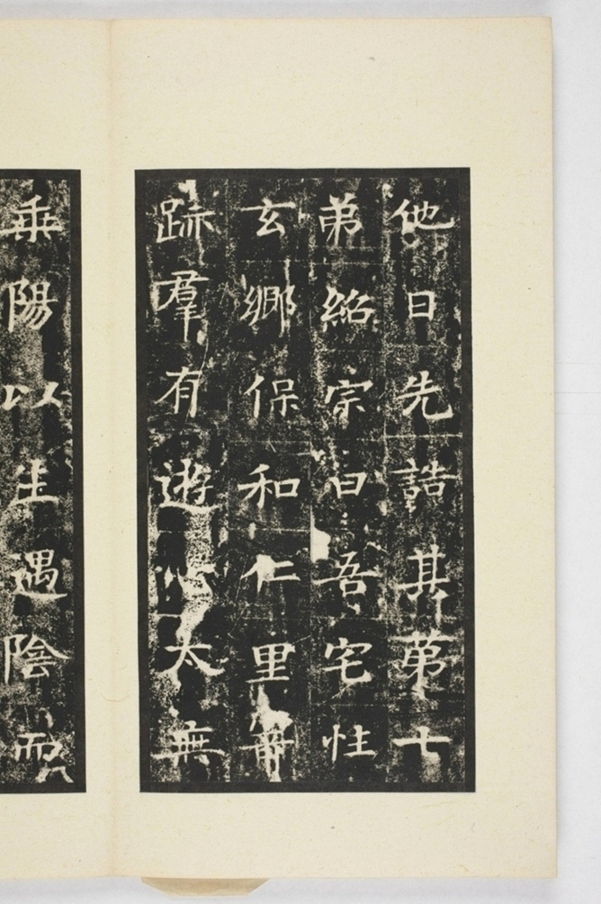 他日先誥其苐十
弟紹宗曰吾宅性
玄鄉保和仁里寄
跡羣有遊心太無
乘陽以生遇陰而